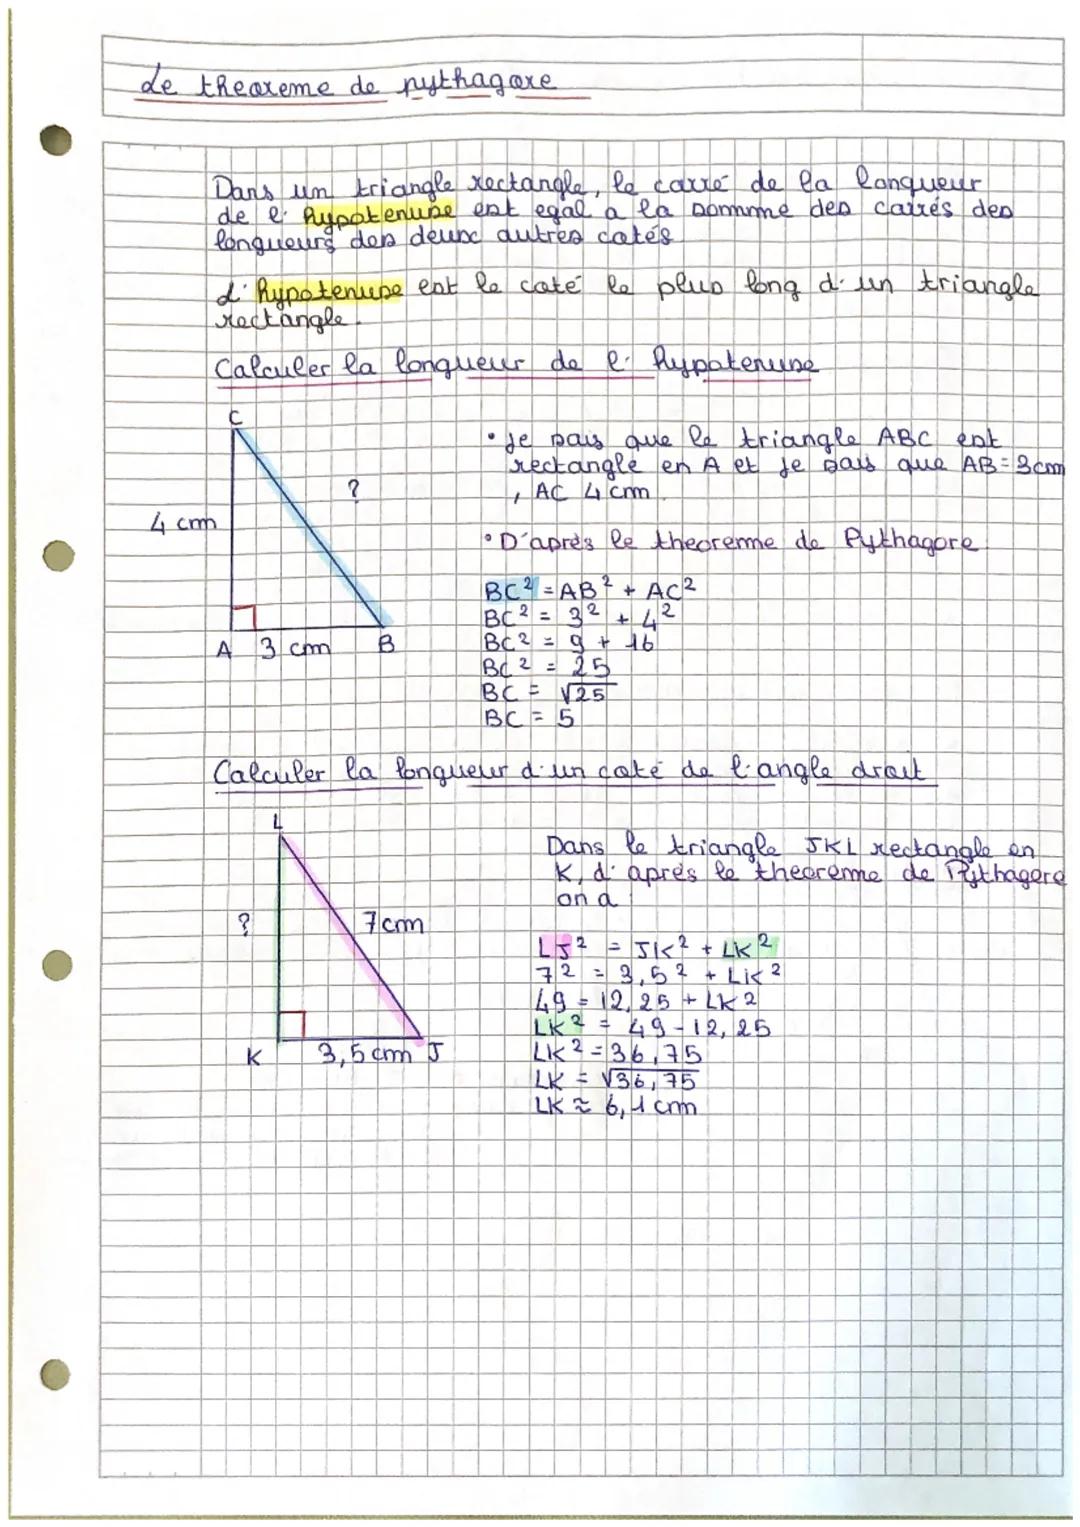 Le theoreme de pythagore
Dans un triangle rectangle, le carré de la longueur
de l' hypotenuse est egal a la somme des carrés des
longueurs des deux autres cotés
L'hypotenuse est le coté le plus long d'un triangle
rectangle.
Calculer la longueur de l'hypotenuse
C
• Je sais que le triangle ABC est
rectangle en A et je sais que AB = 3cm
, AC 4 cm.
?
4 cm
• D'aprés le theoreme de Pythagore
BC² = AB² + AC²
BC² = 3² + 4²
A 3 cm B
BC² = 9 + 16
BC² = 25
BC = √25
BC = 5
Calculer la longueur d'un coté de l'angle droit
L
Dans le triangle JKL rectangle en
K, d'aprés le theoreme de Pythagore
on a :
?
7cm
LJ² = JK² + LK²
7² = 3,5² + LK²
49 = 12,25 + LK²
LK² = 49 - 12,25
K 3,5 cm J
LK² = 36,75
LK = √36,75
LK ≈ 6,1 cm